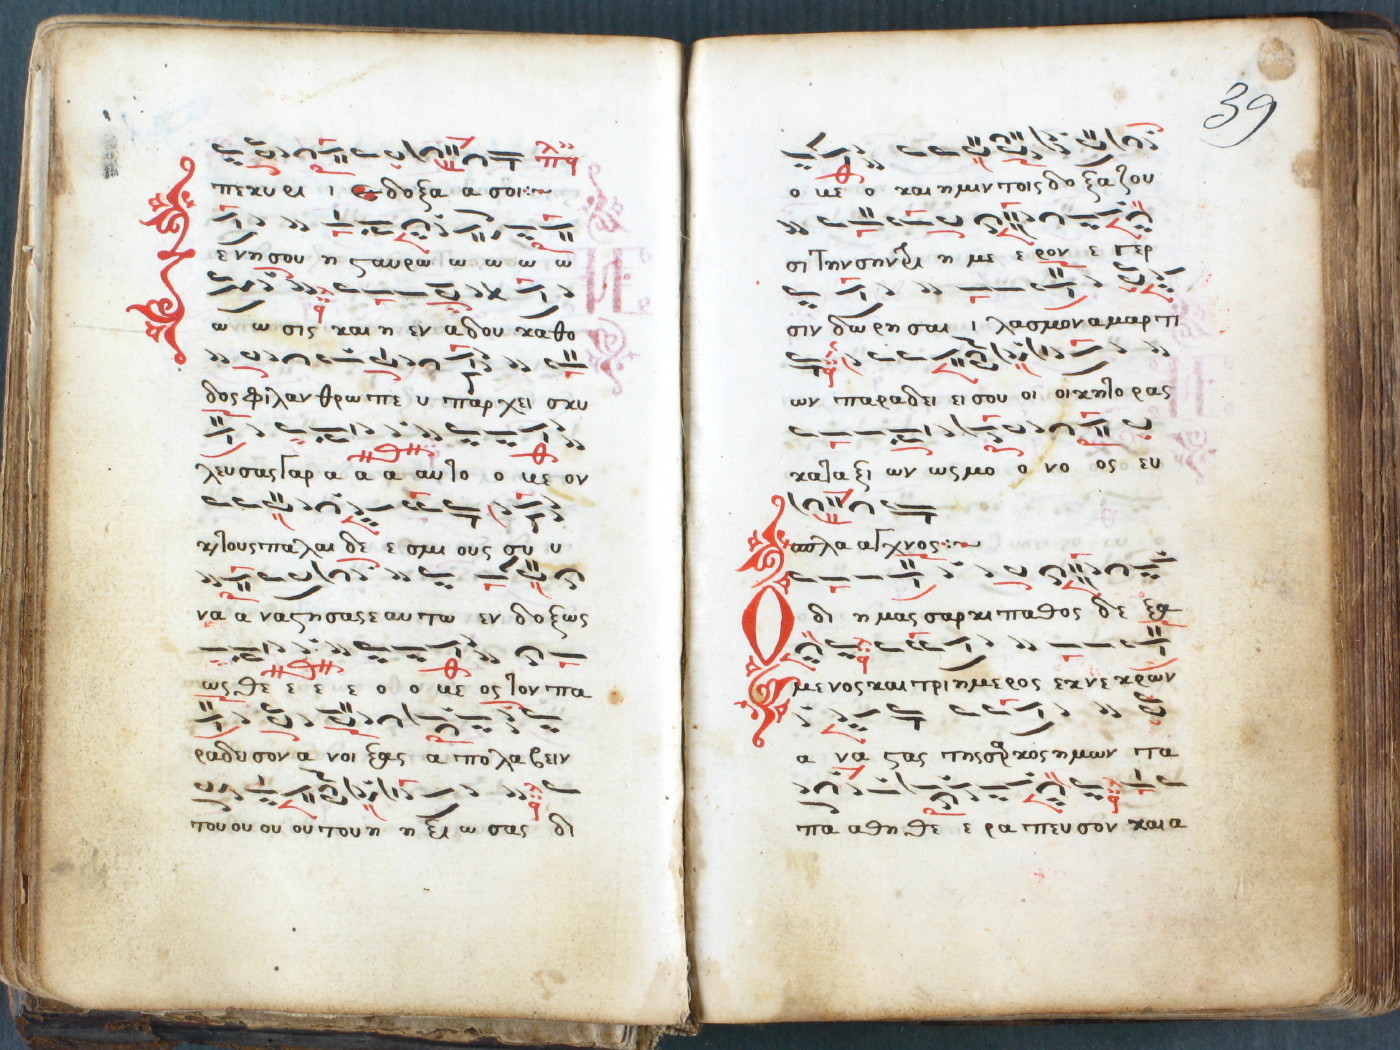 πε κυ ρι ι ε δο ξα α σοι :~
ε νη σου η ςαυ ρω ω ω ω ω
ω ω σις και η εν α δου καθο
δος φι λαν θρω πε υ παρ χει σκυ
λευ σας γαρ α α α αυ το ο με ον
κ τους πα λαι δε ε σμι ους συ υ
να α να ςη σας ε αυ τω εν δο ξως
ως θε ε ε ε ο ο με ος τον πα
ρα δει σον α νοι ξας α πο λα βειν
του ου ου ου του η η ξι ω σας δι
39
ο με ο και η μιν τοις δο ξα ζου
σι την σην ε με ε ρον ε γερ
σιν δω ρη σαι ι λασ μον α μαρ τι
ων πα ρα δει ει σου οι οι κη το ρας
κα τα ξι ων ως μο ο νο ος ευ
σπλα α γχνος :~
Ο δι η μας σαρ κι πα θος δε ξα
με νος και τρι η με ρος εκ νε κρων
α να ςας της σρκος η μων τα
πα α θη θε ε ρα πευ σον και α